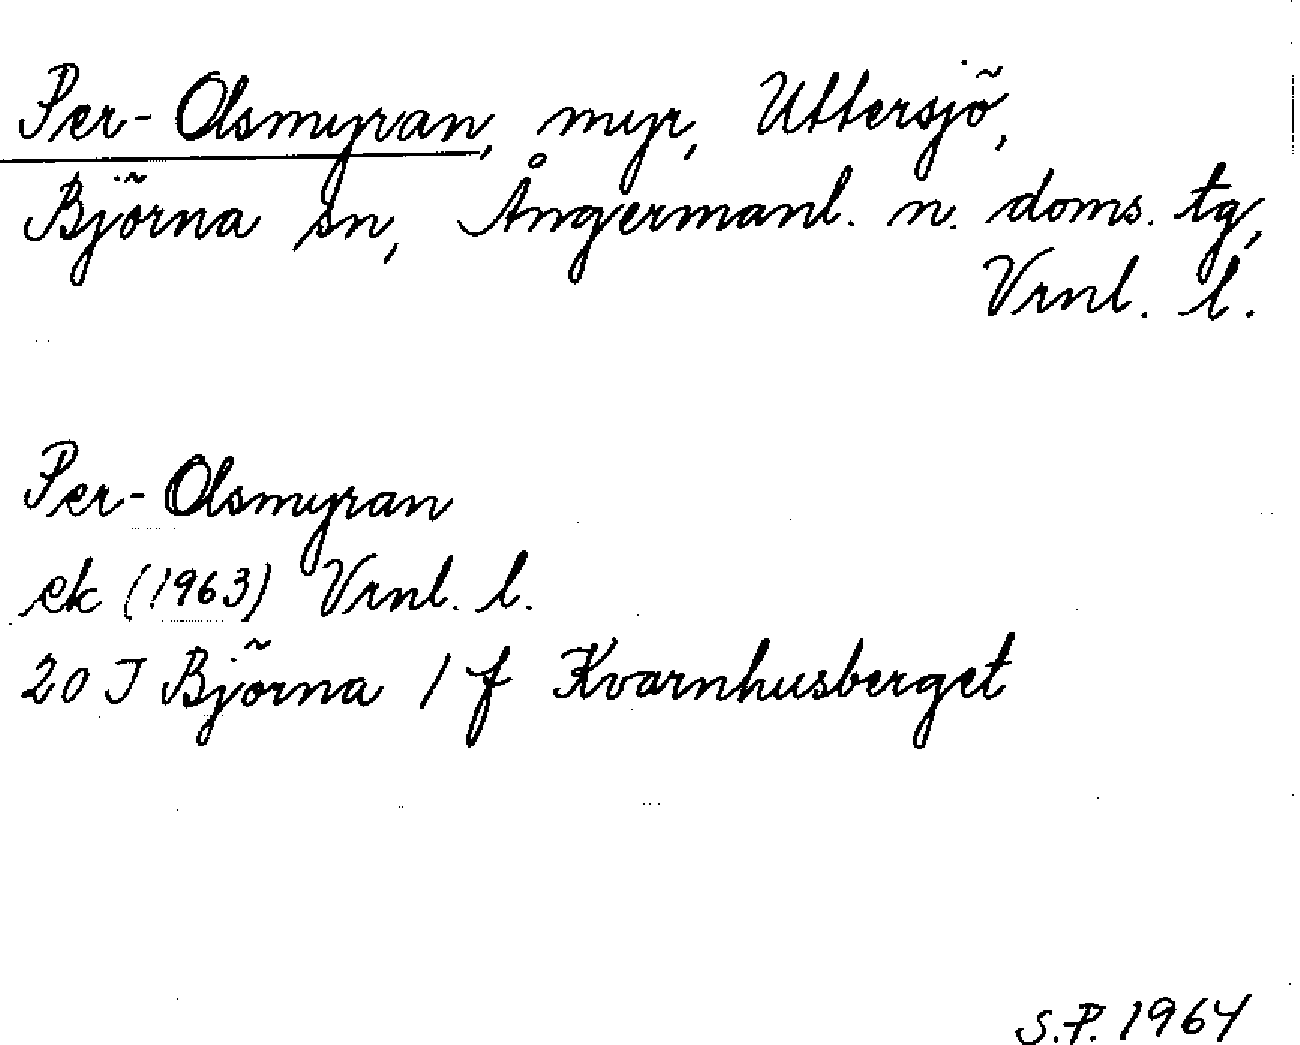 Per-Olsmyran, myr, Uttersjö,
Björna sn, Ångermanl. n. doms. tg,
Vrnl. l.
Per-Olsmyran
ek (1963) Vrnl. l.
20 J Björna 1 f Kvarnhusberget
S.P. 1964